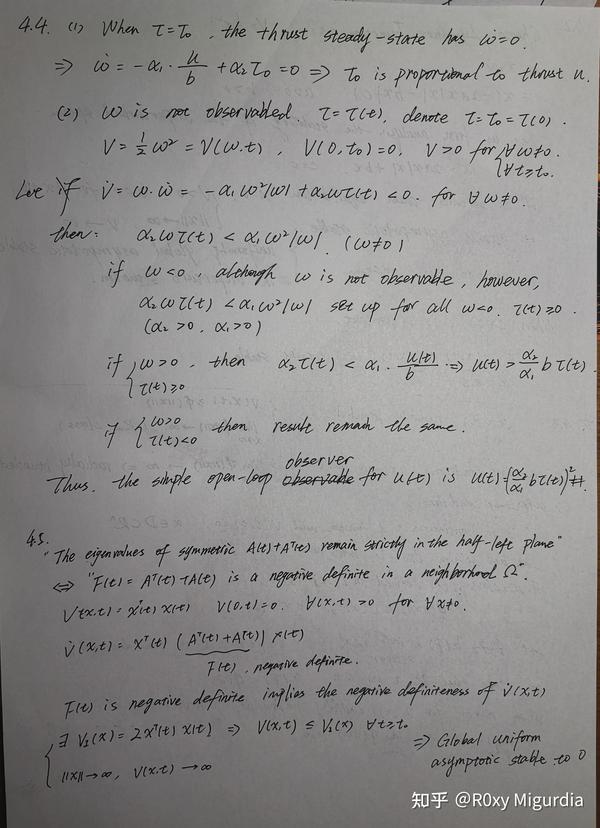 4.4. (1) When τ=τ₀, the thrust steady-state has ω̇=0.
⇒ ω̇ = -α₁·u/b + α₂τ₀ = 0 ⇒ τ₀ is proportional to thrust u.
(2) ω is not observabled. τ=τ(t), denote τ=τ₀=τ(0).
V = ½ω² = V(ω.t), V(0,t₀)=0, V>0 for {∀ω≠0. ∀t≥t₀.
if V̇ = ω·ω̇ = -α₁ω²|ω| + α₂ωτ(t) < 0. for ∀ω≠0.
then: α₂ωτ(t) < α₁ω²|ω|. (ω≠0)
if ω<0, although ω is not observable, however,
α₂ωτ(t) < α₁ω²|ω| set up for all ω<0. τ(t)≥0.
(α₂>0, α₁>0)
if {ω>0, τ(t)≥0 then α₂τ(t) < α₁·u(t)/b ⇒ u(t) > α₂/α₁ b τ(t).
if {ω>0 τ(t)<0 then result remain the same.
observer
Thus. the simple open-loop observable for u(t) is u(t)=(α₂/α₁ bτ(t))² #.
4.5.
"The eigenvalues of symmetric A(t)+Aᵀ(t) remain strictly in the half-left plane"
⇔ "F(t) = Aᵀ(t)+A(t) is a negative definite in a neighborhood Ω".
V(x,t) = xᵀ(t) x(t) V(0,t)=0. V(x,t) >0 for ∀x≠0.
V̇(x,t) = xᵀ(t) (Aᵀ(t)+A(t)) x(t)
F(t), negative definite.
F(t) is negative definite implies the negative definiteness of V̇(x,t)
{∃ V₁(x) = 2xᵀ(t) x(t) ⇒ V(x,t) ≤ V₁(x) ∀t≥t₀
||x||→∞, V(x,t) →∞
⇒ Global uniform
asymptotic stable to 0
知乎 @R0xy Migurdia